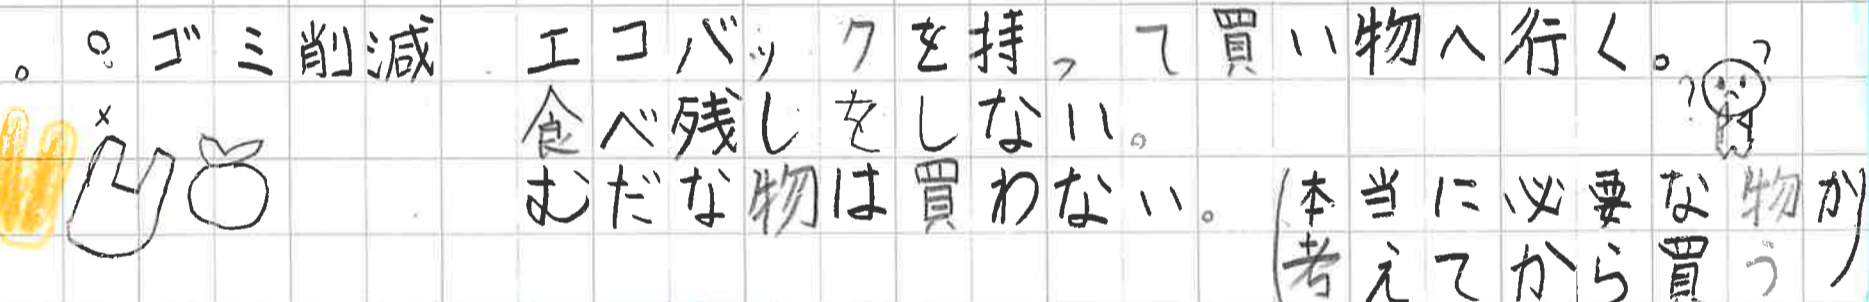 。○ゴミ削減 エコバックを持って買い物へ行く。
食べ残しをしない。
むだな物は買わない。(本当に必要な物か
考えてから買う)